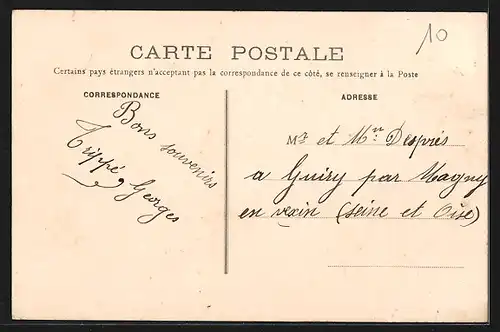 10
CARTE POSTALE
Certains pays étrangers n'acceptant pas la correspondance de ce côté, se renseigner à la Poste
CORRESPONDANCE
Bons souvenirs
Trippé Georges
ADRESSE
Mr et Mme Després
a Guiry par Magny
en vexin (Seine et Oise)